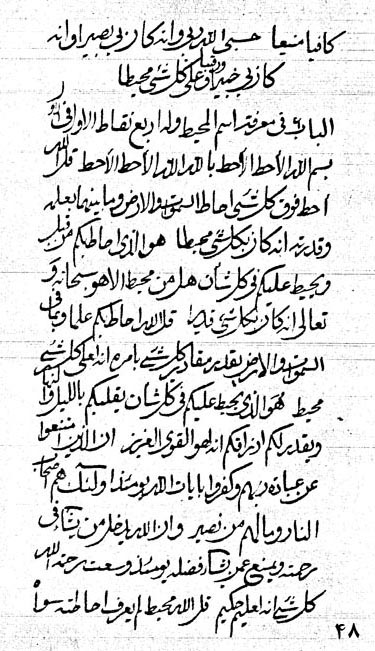 كافيا منيعا حسبى الله ربى وانه كان ربى بصيرا وانه
كان ربى خبيرا وقيل وعلى كل شئ محيطا
الباب فى معرفة اسم المحيط وله اربع نقاط الاول فى الاول
بسم الله الأحط الأحط بالله الله الأحط الأحط قل الله
احط فوق كل شئ احاط السموات والارض وما بينهما بعلمه
وقدرته انه كان بكل شئ محيطا هو الذى احاطكم من قبل
ويحيط عليكم فى كل شأن هل من محيط الا هو سبحانه و
تعالى انه كان بكل شئ قديرا قل الله احاط بكم علما وبما فى
السموات والارض يقدر مقادير كل شئ بامره انه على كل شئ
محيط هو الذى يحيط عليكم فى كل شان يقلبكم بالليل والنهار
ويقدر لكم ارزاقكم انه لهو القوى العزيز ان الذين امتنعوا
عن عبادة ربهم وكفروا بايات الله يومئذ اولئك هم اصحاب
النار ومالهم من نصير وان الله يدخل من يشاء فى
رحمته ويمنع عمن يشاء فضله يومئذ وسعت رحمة الله
كل شئ انه لعليم حكيم قل الله محيط لم يعرف احاطته سواه
۴۸